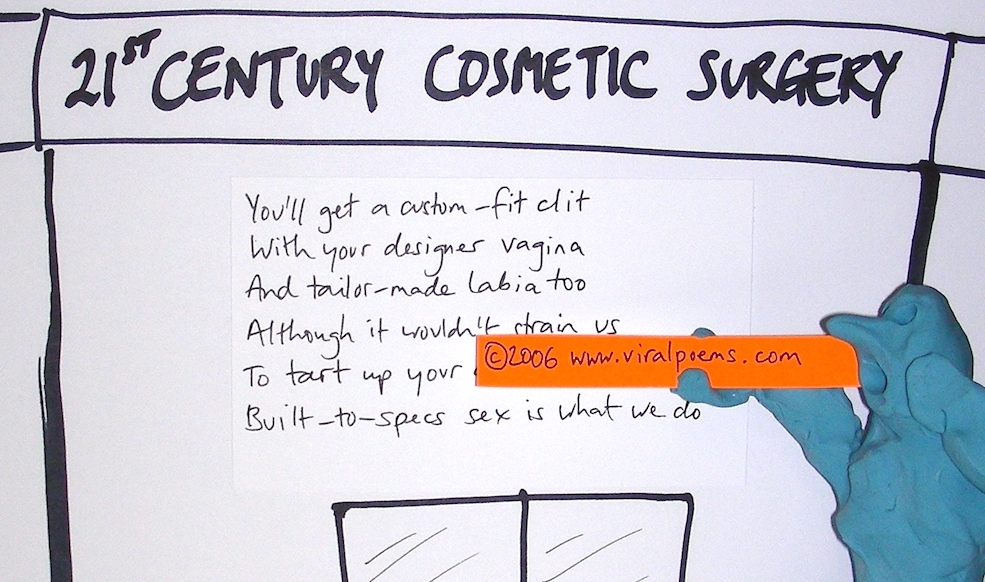 21ST CENTURY COSMETIC SURGERY
You'll get a custom-fit clit
With your designer vagina
And tailor-made labia too
Although it wouldn't strain us
To tart up your
©2006 www.viralpoems.com
Built-to-specs sex is what we do